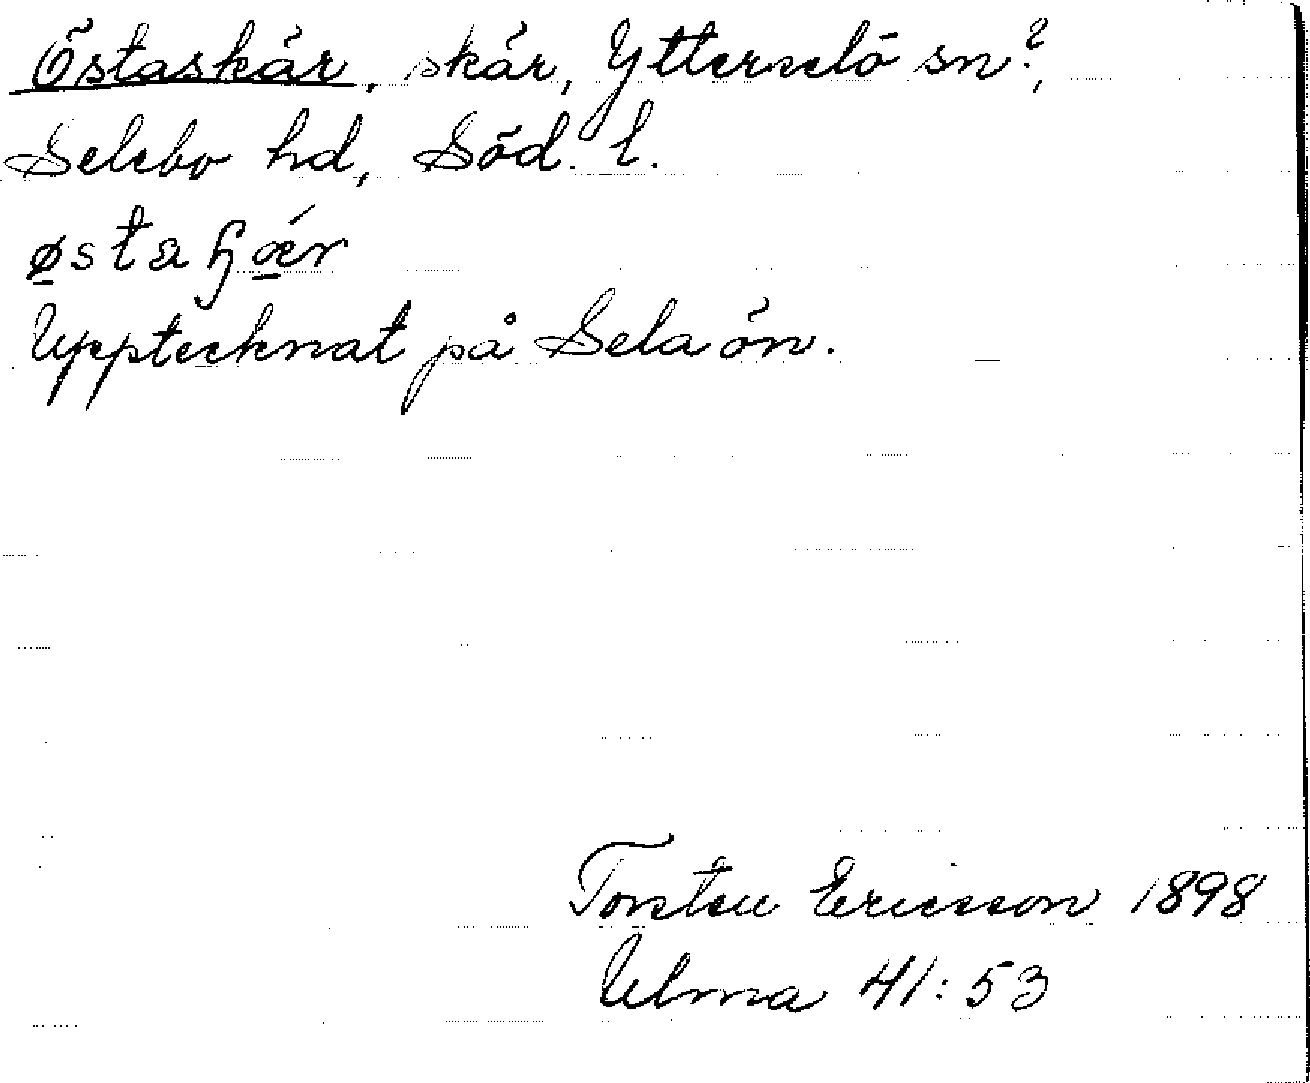 Östaskär, skär, Ytterselö sn?,
Selebo hd, Söd. l.
Upptecknat på Selaön.
Torsten Ericsson 1898
Ulma 41:53